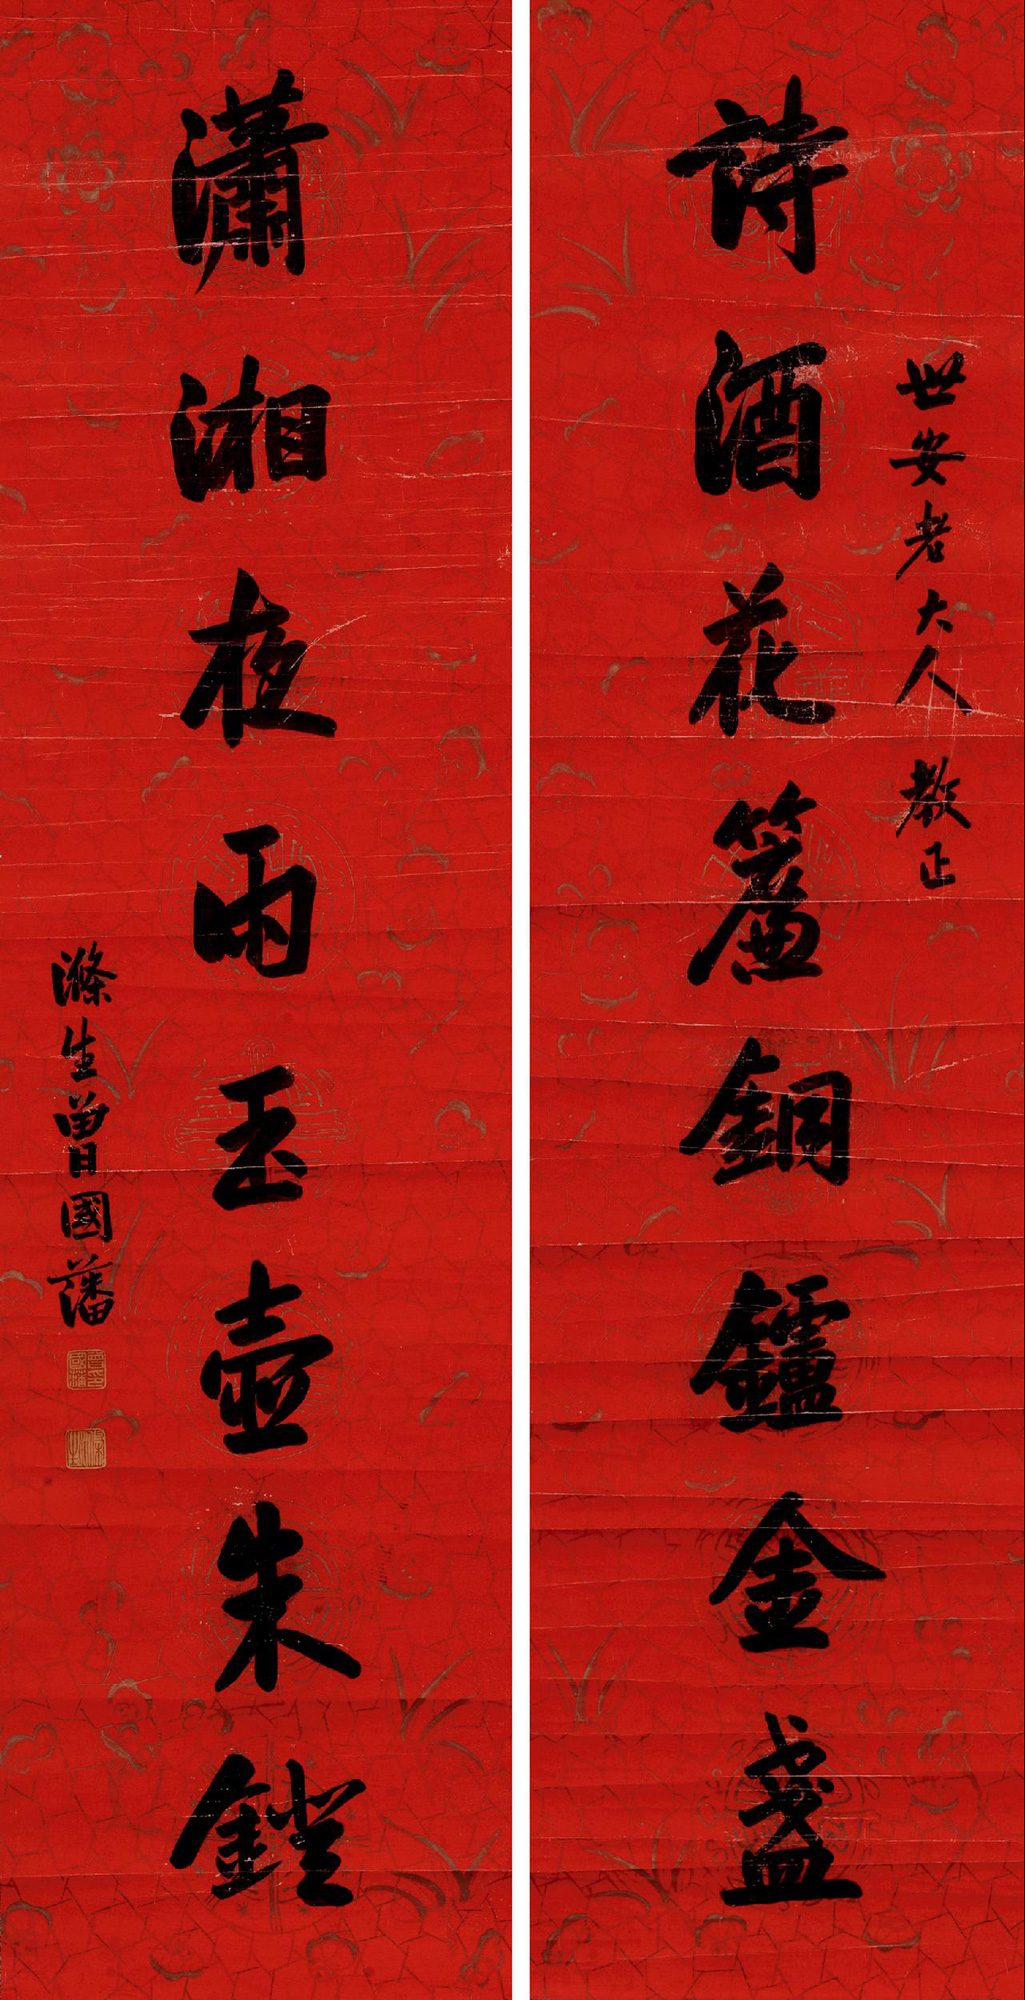 世安老大人 教正
詩酒花簾銅鑪金盞
瀟湘夜雨玉壺朱鐙
滌生曾國藩